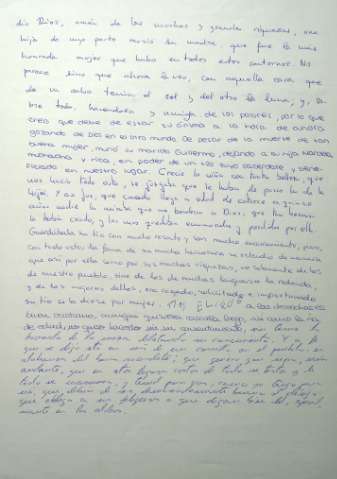 dio Dios, amén de las muchas y grandes riquezas, una
hija de cuyo parto murió su madre, que fue la más
honrada mujer que hubo en todos estos contornos. No
parece sino que ahora la veo, con aquella cara que
de un cabo tenía el sol y del otro la luna; y, so
bre todo, hacendosa y amiga de los pobres, por lo que
creo que debe de estar su ánima a la hora de ahora
gozando de Dios en el otro mundo. De pesar de la muerte de tan
buena mujer, murió su marido Guillermo, dejando a su hija Marcela,
muchacha y rica, en poder de un tío suyo sacerdote y
en nuestro lugar. Creció la niña con tanta belleza, que
nos hacía
hija. Y así fue, que cuando llegó a edad de catorce a quince
años nadie la miraba que no bendecía a Dios, que tan hermosa
la había criado, y los más quedaban enamorados y perdidos por ella.
Guardábala su tío con mucho recato y con mucho encerramiento; pero,
con todo esto, la fama de su mucha hermosura se extendió de manera
que así por ella como por sus muchas riquezas, no solamente de los
de nuestro pueblo, sino de los de muchas leguas a la redonda,
y de los mejores dellos, era rogado, solicitado e importunado
su tío se la diese por mujer.
buen cristiano, aunque quisiera casarla luego, así como la vía
de edad, no quiso hacerlo sin su consentimiento, sin tener
a la
que se dijo esto en más de un corrillo en el pueblo, en
alabanza del buen sacerdote; que quiero que sepa, señor
andante, que en estos lugares cortos de todo se trata y de
todo se murmura, y tened para vos, como yo tengo para
mí, que debía de ser demasiadamente bueno el clérigo
que obliga a sus feligreses a que digan bien dél, especial
mente en las aldeas.